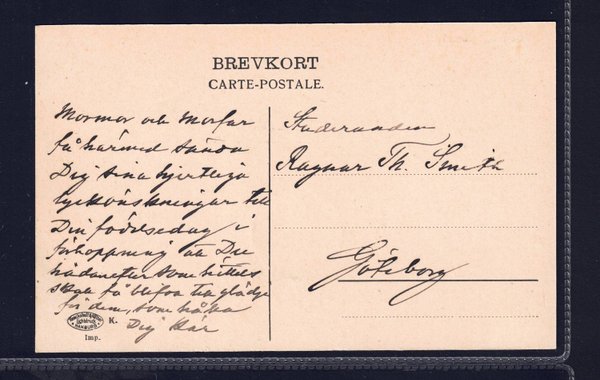 BREVKORT
CARTE-POSTALE.
Mormor och Morfar
få härmed sända
Dig sina hjertliga
lyckönskningar till
Din födelsedag i
förhoppning att Du
hädanefter som hittills
skall få blifva till glädje
för dem, som hålla
Dig kär
Studeranden
Ragnar Th. Smith
Göteborg
K.
Imp.